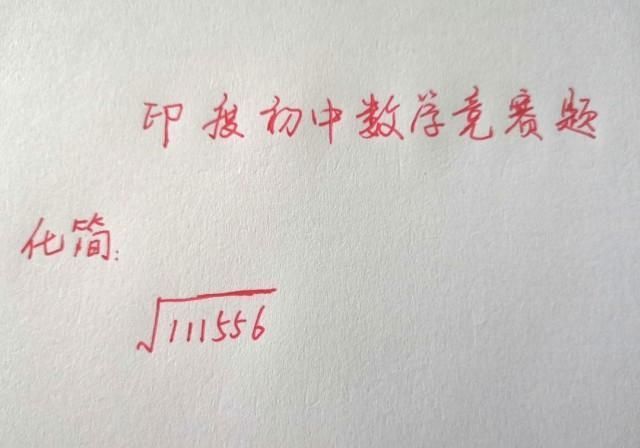 印度初中数学竞赛题
化简:
√111556